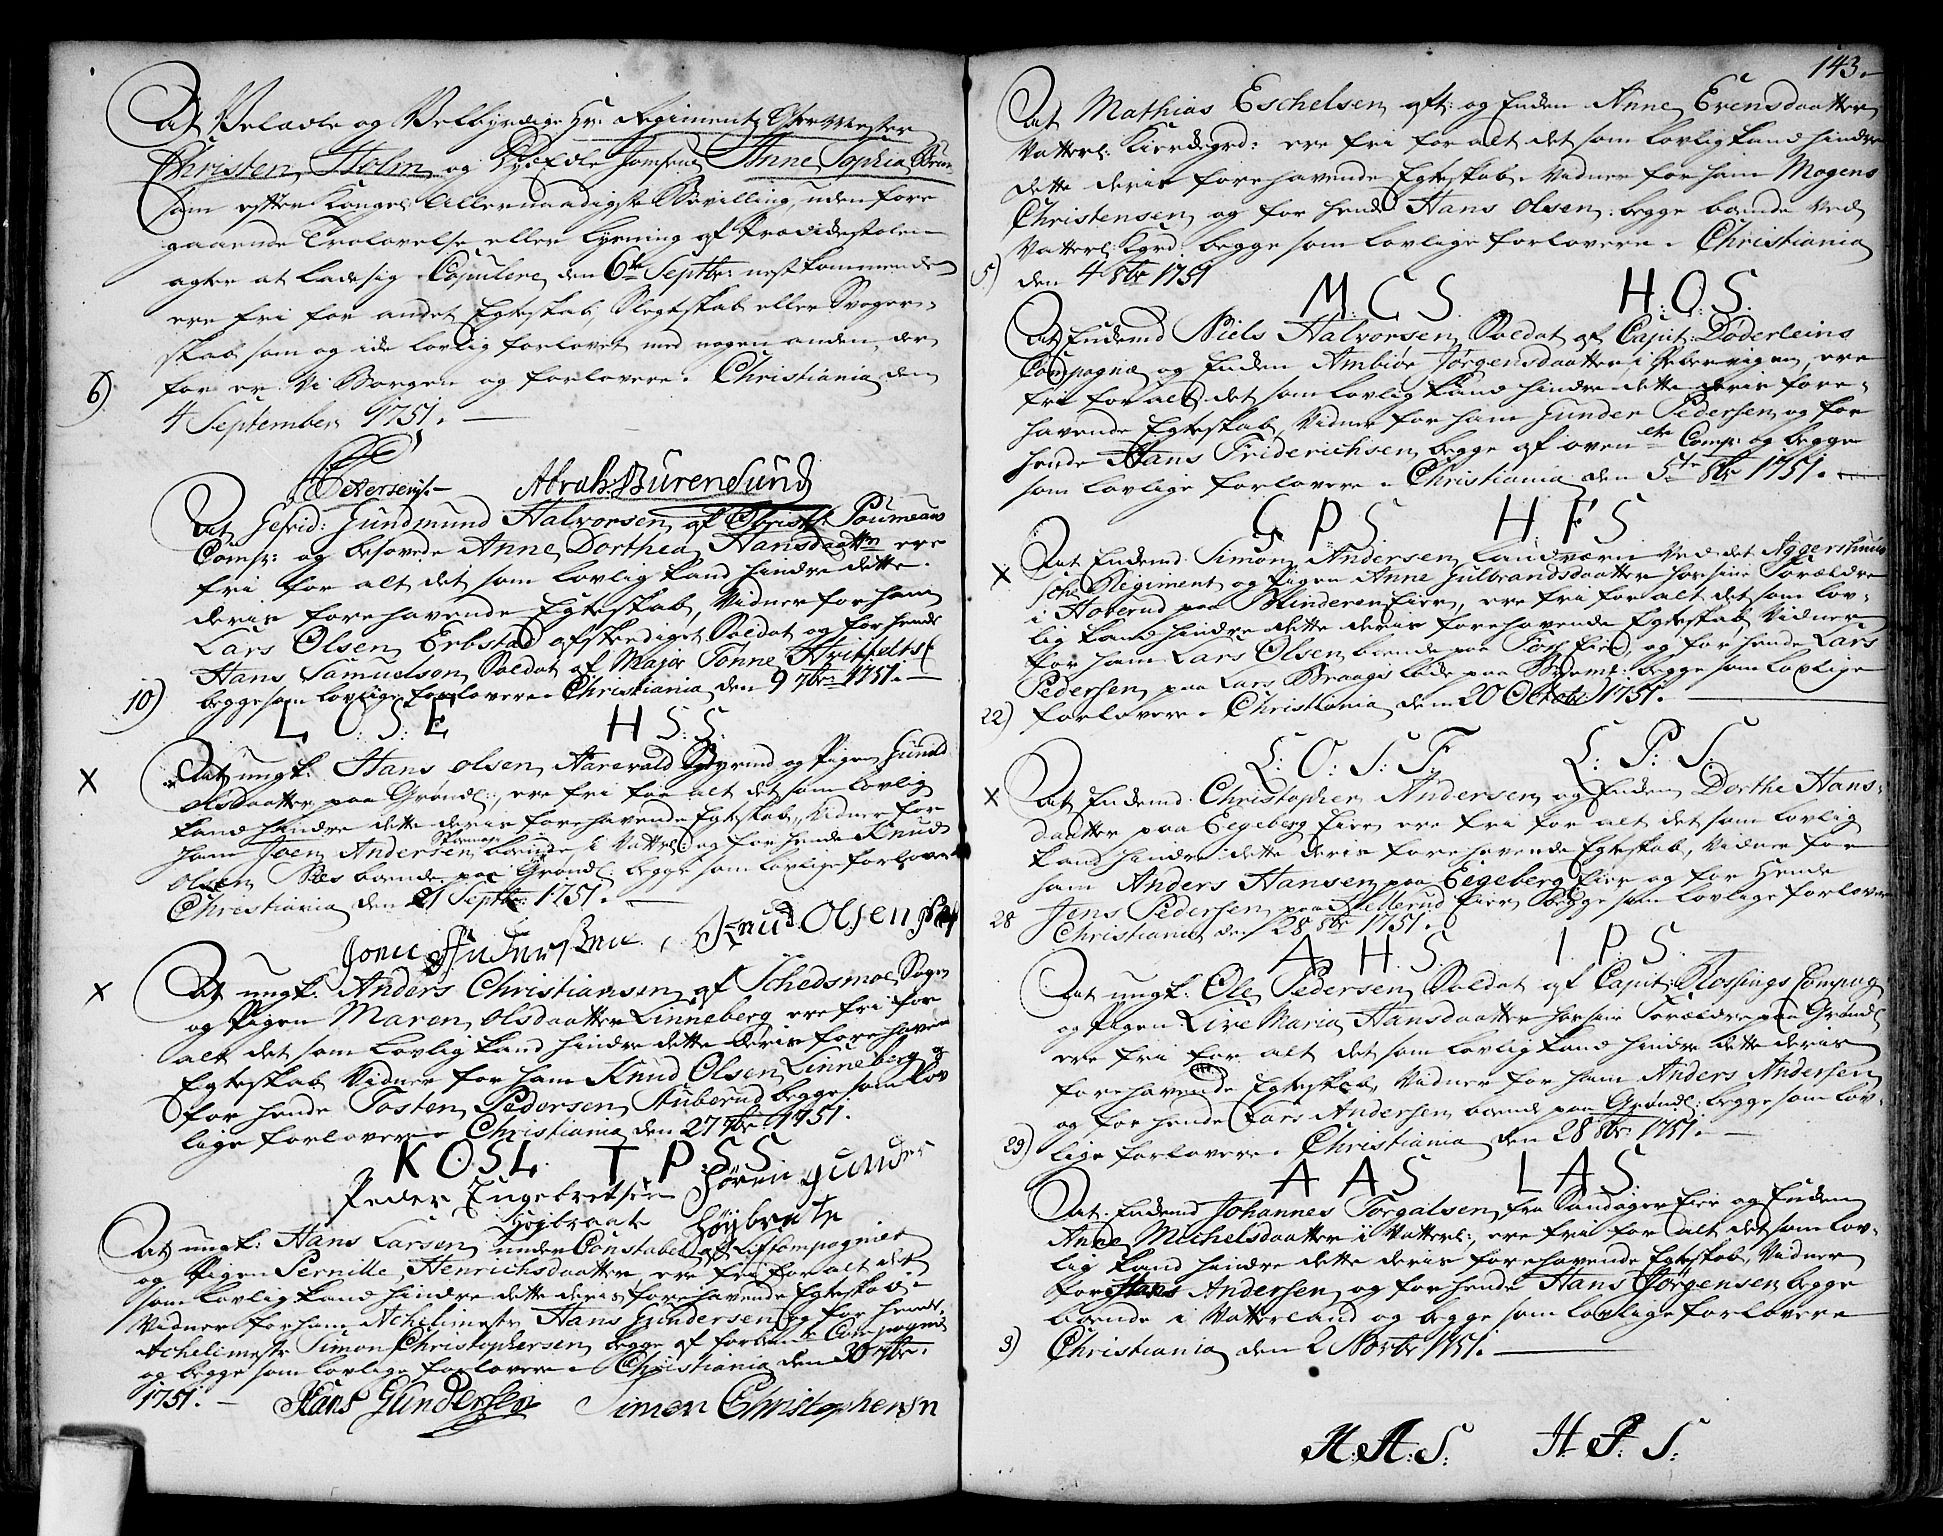 At Velædle og Velbyrdige Hr: Regiments
Christen Holm og Jomfrue Anne Sophia
som efter Kongel: Allernaadigste Bevilling, uden fore
gaaende Trolovelse eller Lysning af Prædickestolen
agter at lade sig Copulere den 6te Septbr: nestkommende
ere fri for andet Egteskab, Slegtskab eller Svoger-
skab, som og ide lovlig forlovet med nogen anden, der
6) for er Vi Borgen og forlovere. Christiania den
4 September 1751.
Petersen. Abrah: Bürensund
At Gefrid: Gundmund Halvorsen af
Comp: og besovede Anne Dorthea Hansdaattr ere
fri for alt det som lovlig kand hindre dette
deris forehavende Egteskab, Vidner for ham
Lars Olsen Erbstad afskediget Soldat og for hende
Hans Samuelson Soldat af Major Tonne
10) begge som lovlige forlovere. Christiania den 9 7br: 1751.
L O S E H S S.
X At ungk: Hans Olsen og Pigen Gunild
Olsdaatter paa Grøndl:, ere fri for alt det som lovlig
kand hindre dette deris forehavende Egteskab, Vidner for
ham Joen Andersen boende i Vatterl: og for hende Knud
Olsen Næs boende paa Grøndl: begge som lovlige forlovere
Christiania den 21 Septbr 1751.
Knud Olsen
X At ungk: Anders Christiansen af Schedsmoe Sogn
og Pigen Maren Olsdaatter Linneberg ere fri for
alt det som lovlig kand hindre dette deris forehaven
Egteskab Vidner for ham Knud Olsen Linneberg og
for hende Tosten Pedersen Stuberud begge som lov
lige forlovere Christiania den 27 7br 1751.
K O S L. T P S S
Peder Engebretsen Sören gunder
Høybraate Höybrate
At ungk: Hans Larsen under Constabel af Lifcompagniet
og Pigen Pernille Henrichsdaatter, ere fri for alt det
som lovlig kand hindre dette deris forehavende Egteskab,
Vidner for ham Hans Gundersen og for hende
Simon Christophersen begge af forbente Compagnie
og begge som lovlige forlovere. Christiania den 30 7br:
1751. Hans Gundersen Simen Christophersn
143.
At Mathias Eschelsen og Enken Anne Evensdaatter
Vatterl: Kierkegrd: ere fri for alt det som lovlig kand hindre
dette deris forehavende Egteskab. Vidner for ham Mogens
Christensen og for hende Hans Olsen begge boende ved
Vatterl: Kgrd: begge som lovlige forlovere. Christiania
5) den 4 8br 1751
M. C. S. H. O. S.
At Enkemd Niels Halvorsen Soldat af Capit: Døderleins
Compagnie og Enken Ambiør Jørgensdaatter i Pebervigen, ere
fri for alt det som lovlig kand hindre dette deris fore-
havende Egteskab, Vidner for ham Gunder Pedersen og for
hende Hans Friderichsen begge af oven Comp: og begge
som lovlige forlovere. Christiania den 5te 8br 1751.
G P S H F S
X At Enkemd: Simon Andersen Landværn ved det Aggershuus
sche Regiment og Pigen Anne Gulbrandsdaatter hos sine Forældre
i Hoverud paa Blinderen Eier, ere fri for alt det som lov-
lig kand hindre dette deris forehavende Egteskab Vidner
for ham Lars Olsen boende paa Eier, og for hende Lars
Pedersen paa Lars Braages løkke paa begge som lovlige
22) forlovere. Christiania den 20 Octobr 1751.
L: O: S: F. L: P: S:
X At Enkemd: Christopher Andersen og Enken Dorthe Hans-
daatter paa Eegeberg Eier ere fri for alt det som lovlig
kand hindre dette deris forehavende Egteskab, Vidner for
ham Anders Hansen paa Eegeberg Eier og for Hende
28 Jens Pedersen paa Eier begge som lovlige forlover
Christiania den 28 8br 1751.
A. H. S. I. P. S.
At ungk: Ole Pedersen Soldat af Capit: Compag
og Pigen Live Maria Hansdaatter hos sine Forældre paa Grøndl
ere fri for alt det som lovlig kand hindre dette deris
forehavende Egteskab, Vidner for ham Anders Andersen
og for hende Lars Andersen boende paa Grøndl: begge som lov-
29) lige forlovere. Christiania den 28 8br: 1751.
A A S L A S.
At Enkemd Johannes Torgalsen fra Sandager Eier og Enken
Anne Michelsdaatter i Vatterl:, ere fri for alt det som lov-
lig kand hindre dette deris forehavende Egteskab, Vidner
for Hans Andersen og for hende Hans Jørgensen begge
boende i Vatterland og begge som lovlige forlovere
3) Christiania den 2 Novbr 1751.
H. A: S: H. J: S: